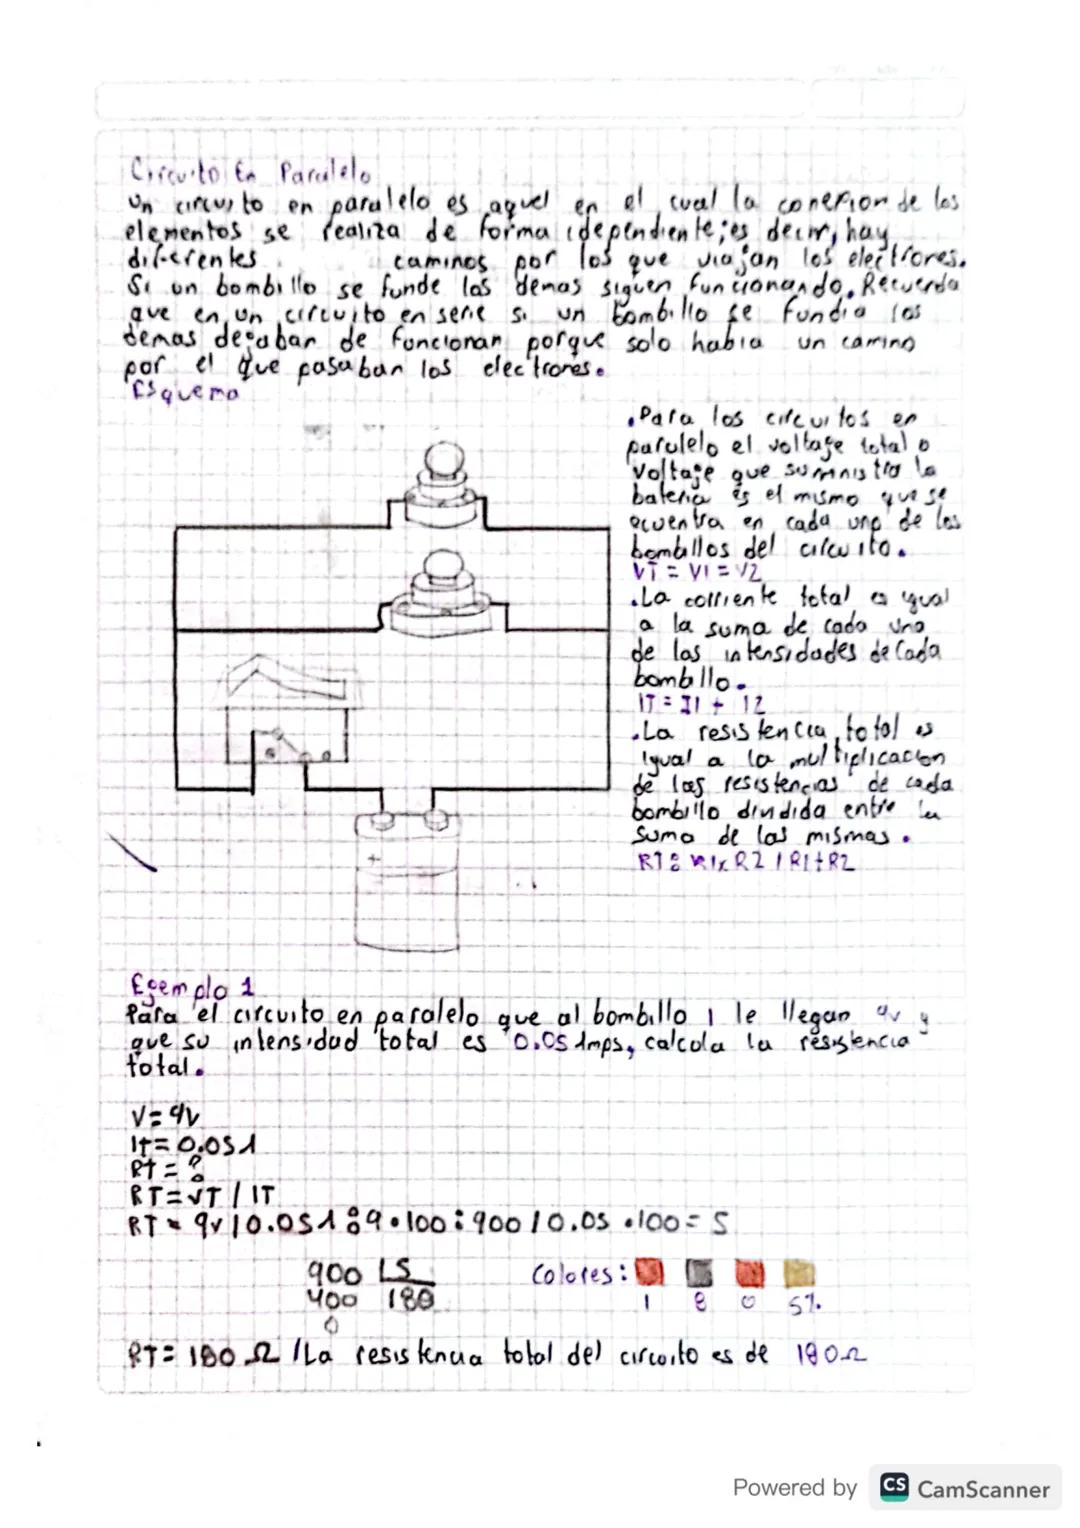 Circuito En Paralelo
Un circuito en paralelo es aquel en el cual la conexion de los
elementos se realiza de forma idependiente; es decir, hay
diferentes caminos por los que viajan los electrores.
Si un bombillo se funde los demas siguen funcionando. Recuerda
que en un circuito en serie si un bombillo se fundia los
demas dejaban de funcionar porque solo habia un camino
por el que pasaban los electrones.
Esquema
.Para los circuitos en
paralelo el voltaje total o
voltaje que suministra la
bateria es el mismo que se
ecuentra en cada uno de los
bombillos del circuito.
VT = V1 = V2
.La corriente total es igual
a la suma de cada una
de las intensidades de Cada
bombillo.
IT = I1 + I2
.La resistencia total es
igual a la multiplicacion
de las resistencias de cada
bombillo dividida entre la
suma de las mismas.
RT= R1x R2 / R1+R2
+
Ejemplo 1
Para el circuito en paralelo que al bombillo 1 le llegan 9v y
que su intensidad total es 0.05 Amps, calcola la resistencia
total.
V= 9V
It= 0.05A
Rt = ?
RT= VT / IT
RT = 9v/0.05A : 9 • 100 : 900 / 0.05 • 100 = 5
900 5
400 180
0
Colores:
1 8 0 5%
RT= 180 Ω /La resistencia total del circuito es de 180Ω
Powered by CS CamScanner